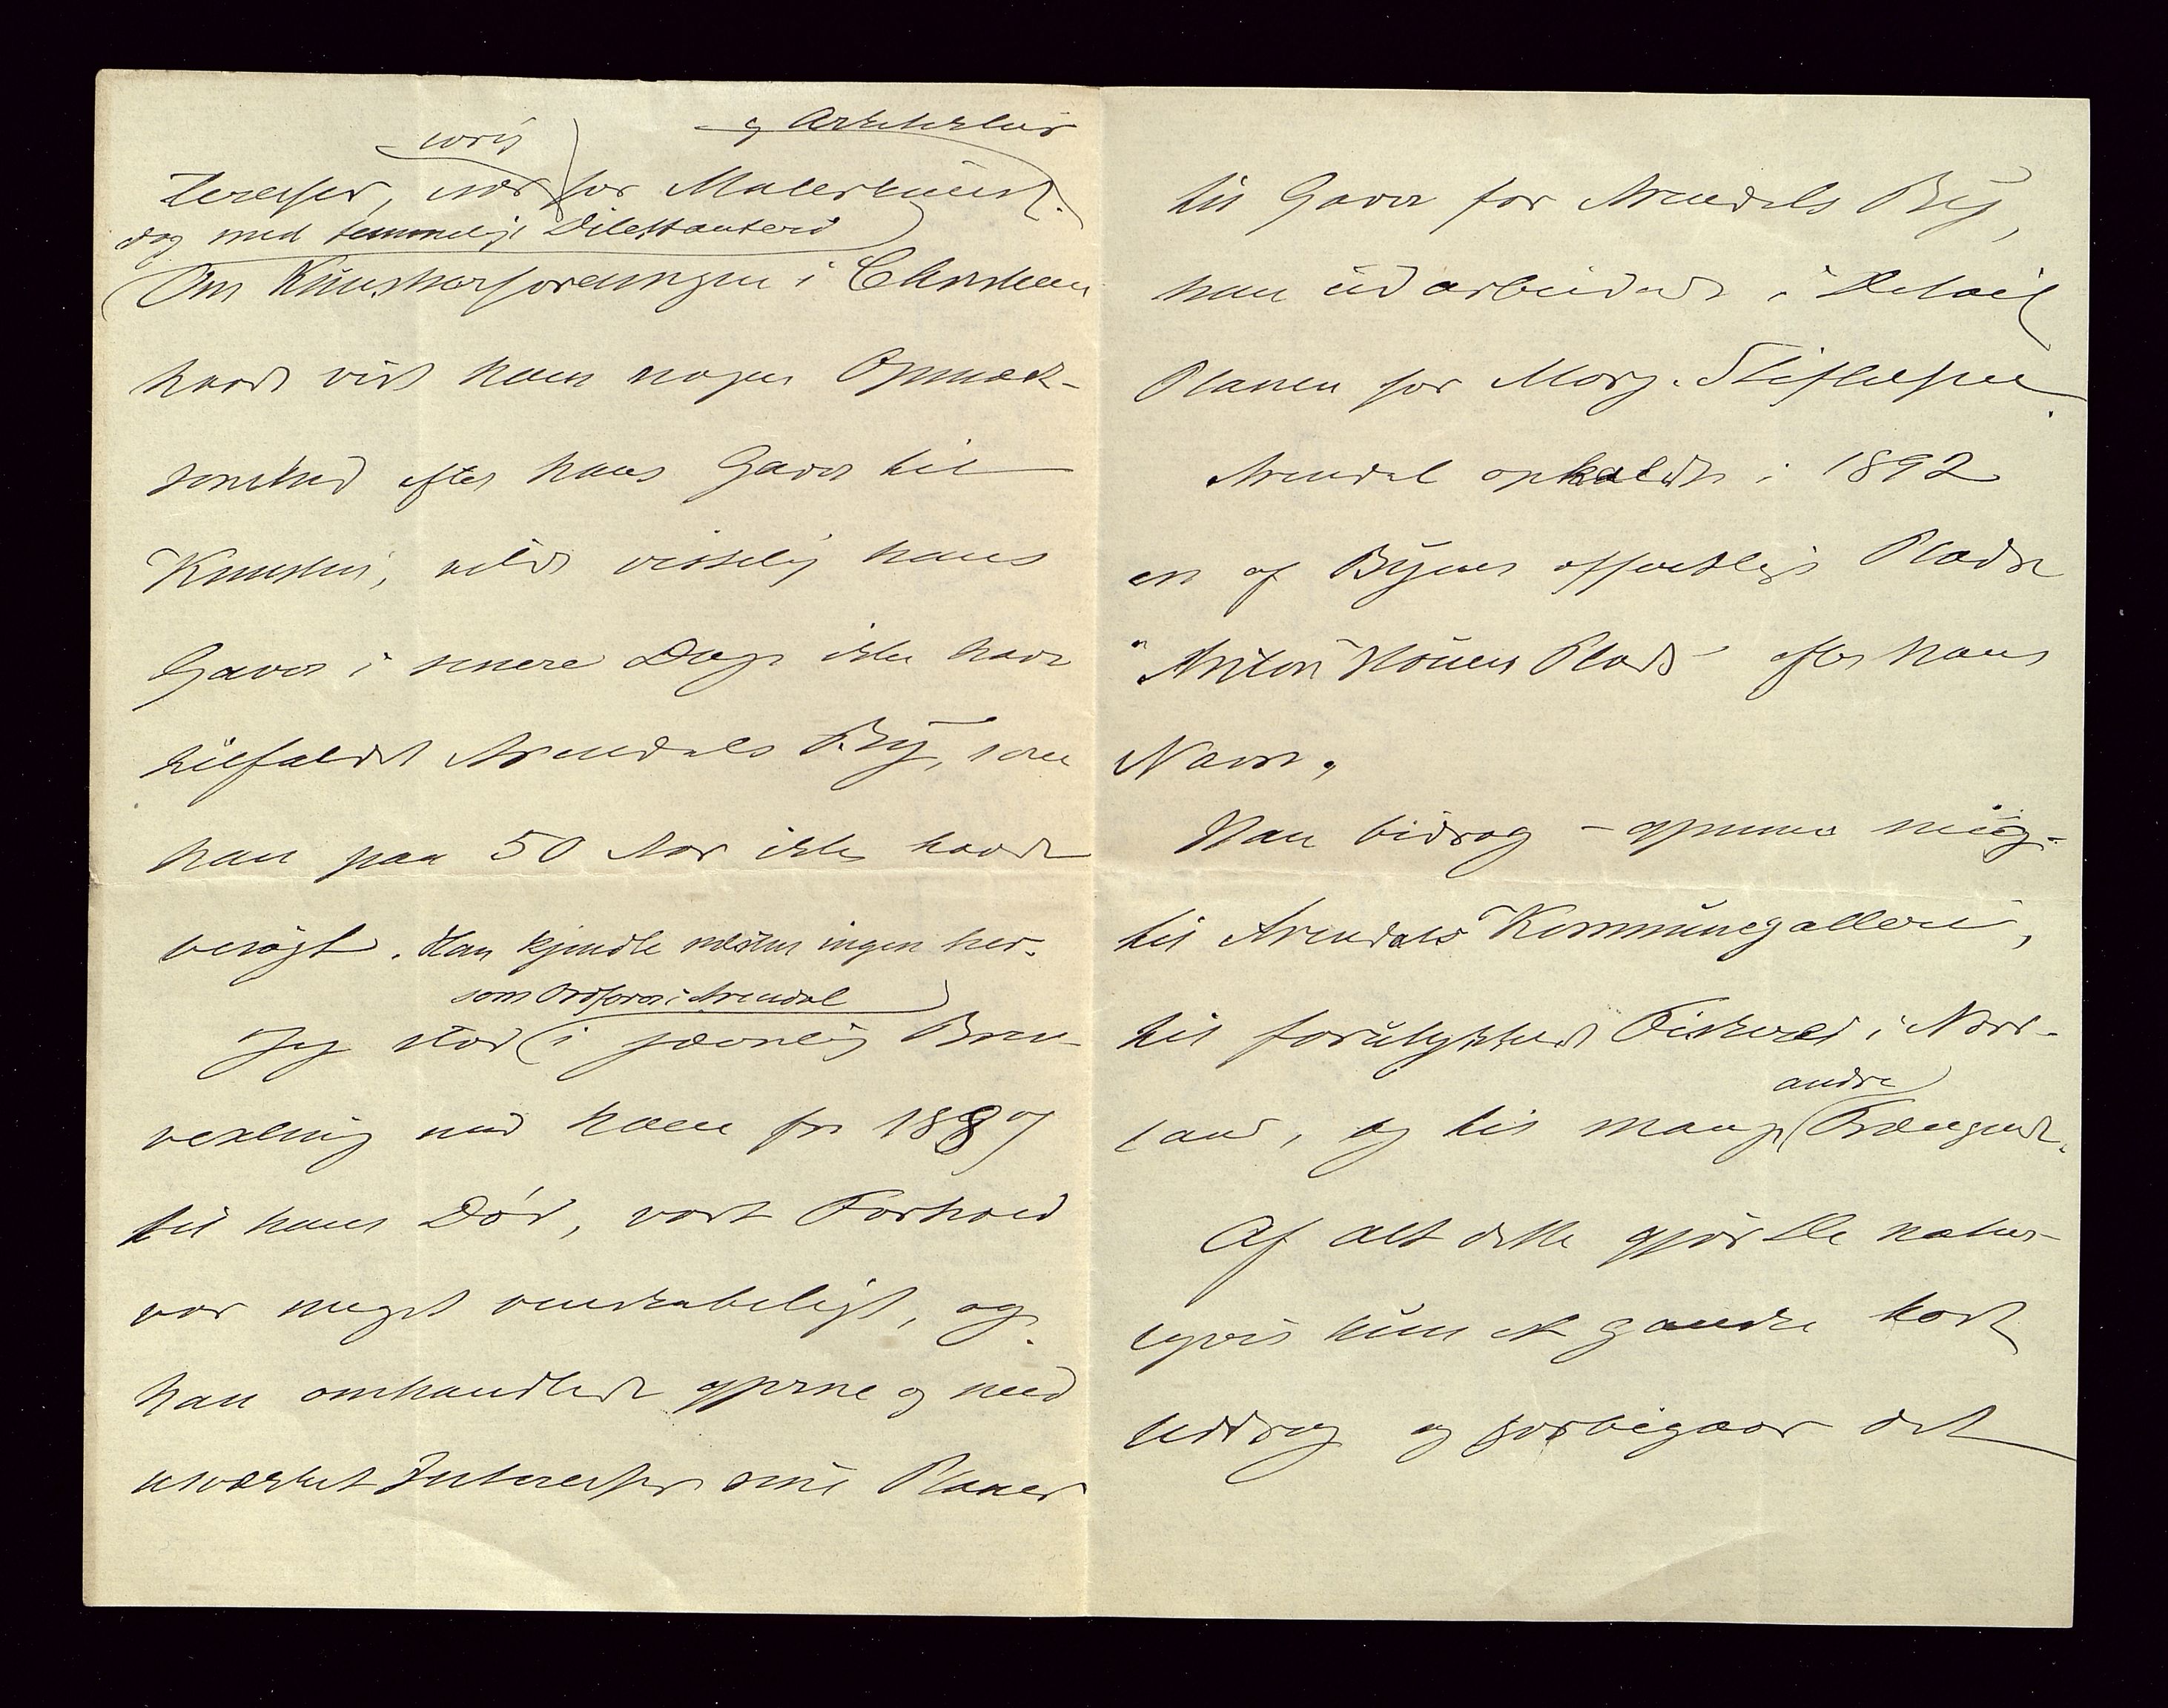 teresser, især for Malerkunst.
og Arkitektur
dog med temmelig Dilettanteri
Om Kunstnerforeningen i Christiania
havde vist ham nogen Opmærk-
somhed efter hans Gaver til
Kunstens, vilde visselig hans
Gaver i senere Dage ikke have
tilfaldt Arendals By, som
han paa 50 Aar ikke havde
besøgt. Han kjendte næsten ingen her.
som Ordfører i Arendal
Jeg stod i jævnlig Brev-
vexling med ham fra 1887
til hans Död, vort Forhold
var meget venskabeligt, og
han omhandlede gjerne og med
usvækket Interesse sine Planer
til Gaver for Arendals By,
han udarbeidede i Detail
Planen for Morg. Stiftelsen.
Arendal opkaldte i 1892
en af Byens offentlige Pladse
"Anton Houens Plads" efter hans
Navn.
Han bidrog - gjennem mig -
til Arendals Kommunegalleri,
til forulykkede Fiskere i Nord-
land, og til mange andre Trængende.
Af alt dette gjør De natur-
ligvis kun et ganske kort
Uddrag og forbigaar det